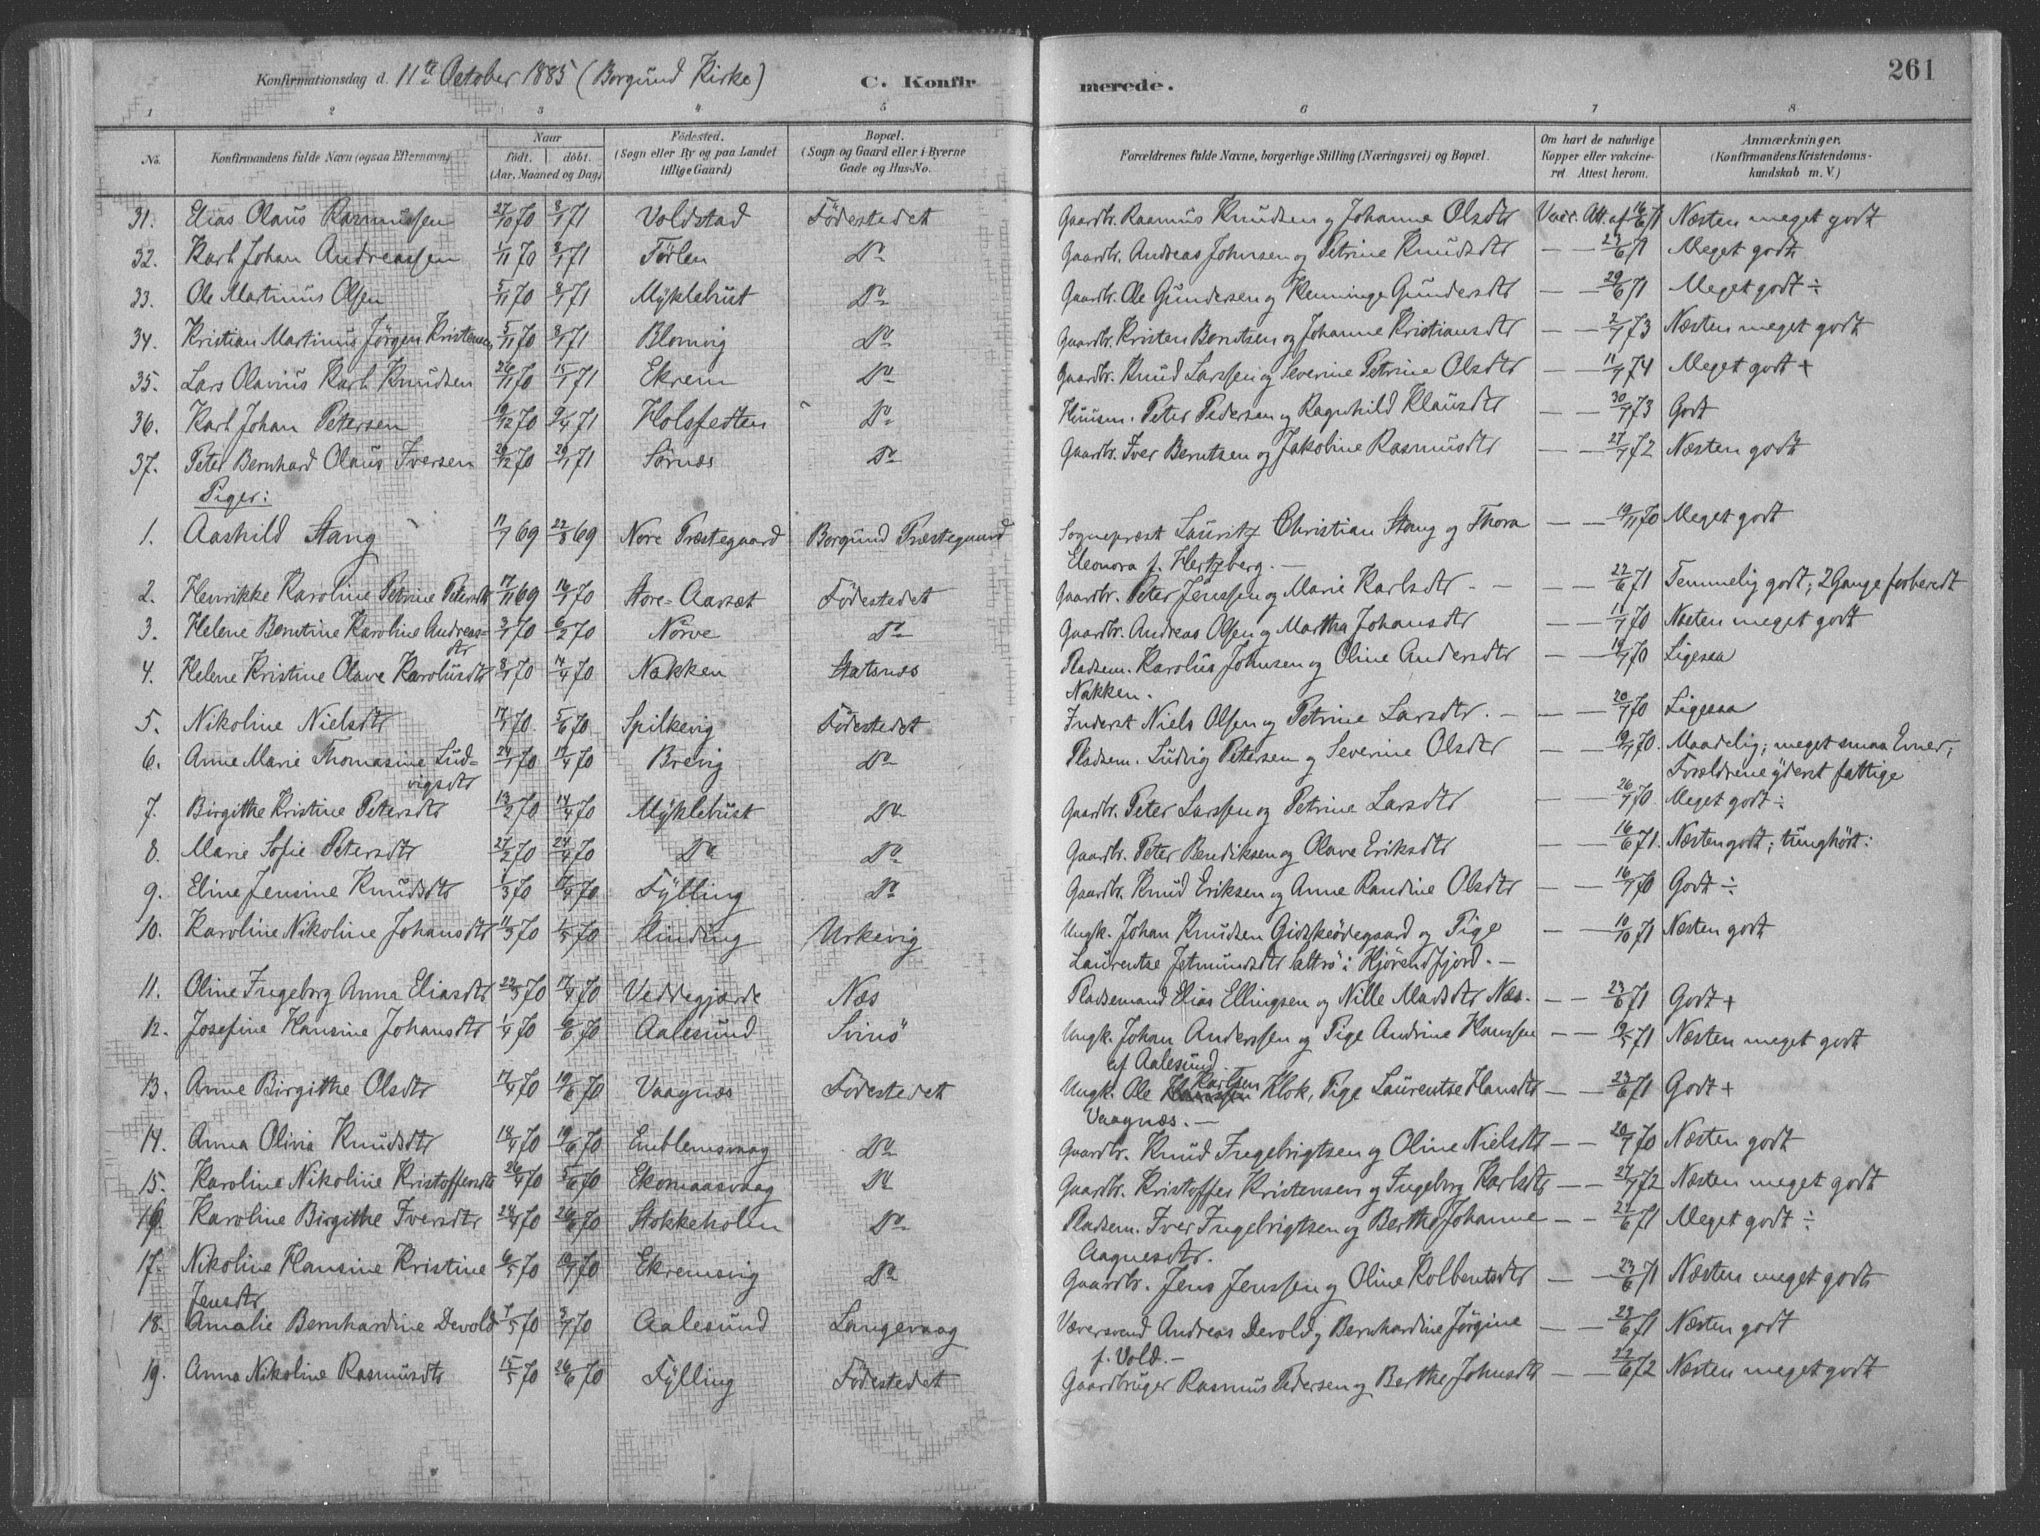 Konfirmationsdag d. 11te October 1885 (Borgund Kirke) C. Konfirmerede. 261
1 2 3 4 5 6 7 8
No. Konfirmandens fulde Navn (ogsaa Efternavn) Naar født. døbt. (Aar, Maaned og Dag) Fødested. (Sogn eller By og paa Landet tillige Gaard) Bopæl. (Sogn og Gaard eller i Byerne Gade og Hus-No. Forældrenes fulde Navne, borgerlige Stilling (Næringsvei) og Bopæl. Om havt de naturlige Kopper eller vakcineret Attest herom. Anmærkninger. (Konfirmandens Kristendomskundskab m. V.)
31. Elias Olaus Rasmussen 27/10 70 8/1 71 Voldstad Fødestedet Gaardbr. Rasmus Knudsen og Johanne Olsdtr Vacc. Att. af 16/6 71 Næsten meget godt
32. Karl Johan Andreassen 1/11 70 8/1 71 Førlen Do Gaardbr. Andreas Johnsen og Petrine Knudsdtr — — 23/6 71 Meget godt
33. Ole Martinus Olsen 5/11 70 8/1 71 Myklebust Do Gaardbr. Ole Gundersen og Henninge Gundersdtr — — 29/6 71 Meget godt ÷
34. Kristian Martinus Jørgen Kristensen 5/11 70 8/1 71 Blomvig Do Gaardbr. Kristen Berntsen og Johanne Kristiansdtr — — 2/7 73 Næsten meget godt
35. Lars Olavius Karl Knudsen 26/11 70 15/1 71 Ekrem Do Gaardbr. Knud Larssen og Severine Petrine Olsdtr — — 11/7 74 Meget godt +
36. Karl Johan Petersen 19/12 70 9/4 71 Holsfedten Do Huusm. Peter Pedersen og Ragnhild Klausdtr — — 30/7 73 Godt
37. Peter Bernhard Olaus Iversen 28/12 70 29/1 71 Sørnæs Do Gaardbr. Iver Berntsen og Jakobine Rasmusdtr — — 27/7 72 Næsten godt
Piger:
1. Aashild Stang 11/7 69 22/8 69 Nore Præstegaard Borgund Præstegaard Sognepræst Lauritz Christian Stang og Thora — — 19/11 70 Meget godt
Eleonora f. Hertzberg. —
2. Henrikke Karoline Petrine Petersdtr 17/11 69 16/1 70 Store-Aarsæt Fødestedet Gaardbr. Peter Jenssen og Marie Karlsdtr — — 22/6 71 Temmelig godt; 2 Gange forberedt
3. Helene Berntine Karoline Andreas- 3/1 70 6/2 70 Nørve Do Gaardbr. Andreas Olsen og Martha Johansdtr — — 11/7 70 Næsten meget godt
dtr
4. Helene Kristine Olave Karolusdtr 8/1 70 4/4 70 Nakken Slatsnæs Pladsem. Karolus Johnsen og Oline Andersdtr — — 19/7 70 Ligesaa
Nakken.
5. Nikoline Nielsdtr 17/1 70 5/6 70 Spilkevig Fødestedet Inderst Niels Olsen og Petrine Larsdtr. — — 20/7 70 Ligesaa
6. Anne Marie Thomasine Lud- 24/1 70 17/4 70 Brevig Do Pladsem. Ludvig Petersen og Severine Olsdtr — — 19/7 70. Maadelig; meget smaa Evner;
vigsdtr Forældrene yderst fattige
7. Birgithe Kristine Petersdtr 13/2 70 14/4 70 Myklebust Do Gaardbr. Peter Larssen og Petrine Larsdtr — — 26/7 70 Meget godt ÷
8. Marie Sofie Petersdtr 27/2 70 24/4 70 Do Do Gaardbr. Peter Bendiksen og Olave Eriksdtr — — 16/6 71. Næsten godt; tunghørt:
9. Eline Jensine Knudsdtr 1/3 70 17/4 70 Fylling Do Gaardbr. Knud Eriksen og Anne Randine Olsdtr — — 16/7 70 Godt ÷
10. Karoline Nikoline Johansdtr 11/3 70 1/5 70 Hinding Urkevig Ungk. Johan Knudsen Gidskeødegaard og Pige — — 10/10 71 Næsten godt
Laurentse Jetmundsdtr i Hjørendfjord. —
11. Oline Ingeborg Anna Eliasdtr 22/3 70 17/4 70 Veddegjærde Næs Pladsemand Elias Ellingsen og Nille Madsdtr Næs. — — 23/6 71 Godt +
12. Josefine Hansine Johansdtr 1/4 70 6/6 70 Aalesund Svinø Ungk. Johan Anderssen og Pige Andrine Hanssen — — 19/5 71 Næsten meget godt
af Aalesund.
13. Anne Birgithe Olsdtr 17/4 70 19/6 70 Vaagnæs Fødestedet Ungk. Ole Karlsen Klok, Pige Laurentse Hansdtr — — 23/6 71 Godt +
Vaagnæs. —
14. Anna Olivia Knudsdtr 18/4 70 19/6 70 Emblemsvaag Do Gaardbr. Knud Ingebrigtsen og Oline Nielsdtr — — 20/7 70 Næsten godt
15. Karoline Nikoline Kristoffersdtr 26/4 70 5/6 70 Ekornaasvaag Do Gaardbr. Kristoffer Kristensen og Ingeborg Karlsdtr — — 27/7 72 Næsten meget godt
16. Karoline Birgithe Iversdtr 24/4 70 26/6 70 Stokkeholm Do Pladsem. Iver Ingebrigtsen og Berthe Johanne — — 22/6 71 Meget godt ÷
Aagnesdtr.
17. Nikoline Hansine Kristine 6/5 70 10/7 70 Ekremsvig Do Gaardbr. Jens Jenssen og Oline Kolbentsdtr — — 23/6 71 Næsten meget godt
Jensdtr
18. Amalie Bernhardine Devold 7/5 70 3/7 70 Aalesund Langevaag Væversvend Andreas Devold og Bernhardine Jørgine — — 23/6 71 Næsten godt
f. Vold. —
19. Anna Nikoline Rasmusdtr 15/5 70 26/6 70 Fylling Fødestedet Gaardbruger Rasmus Pedersen og Berthe Johnsdtr — — 22/6 72 Næsten meget godt